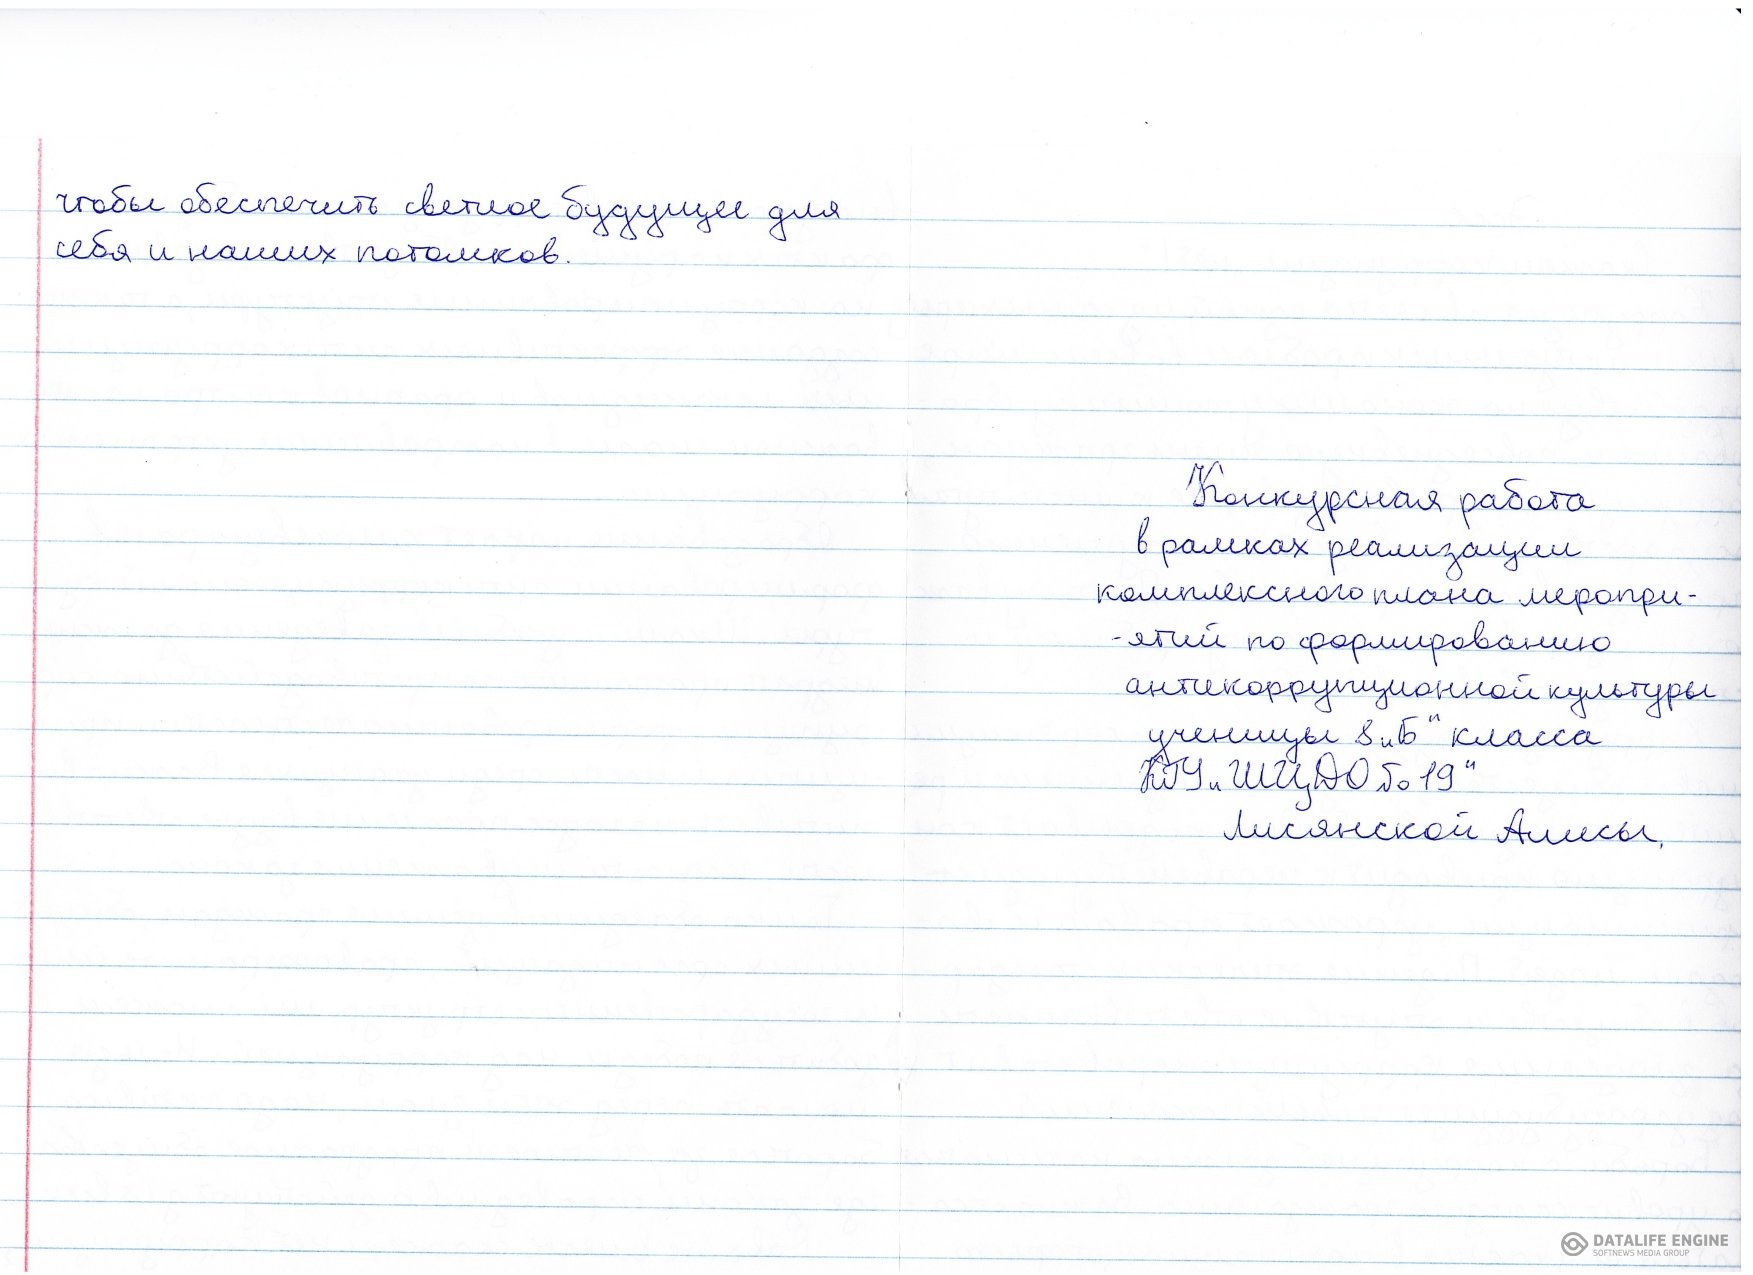 чтобы обеспечить светлое будущее для
себя и наших потомков.
Конкурсная работа
в рамках реализации
комплексного плана меропри-
-ятий по формированию
антикоррупционной культуры
ученицы 8 „Б" класса
КГУ „ШЦДО №19"
Лисянской Алисы.
DATALIFE ENGINE
SOFTNEWS MEDIA GROUP